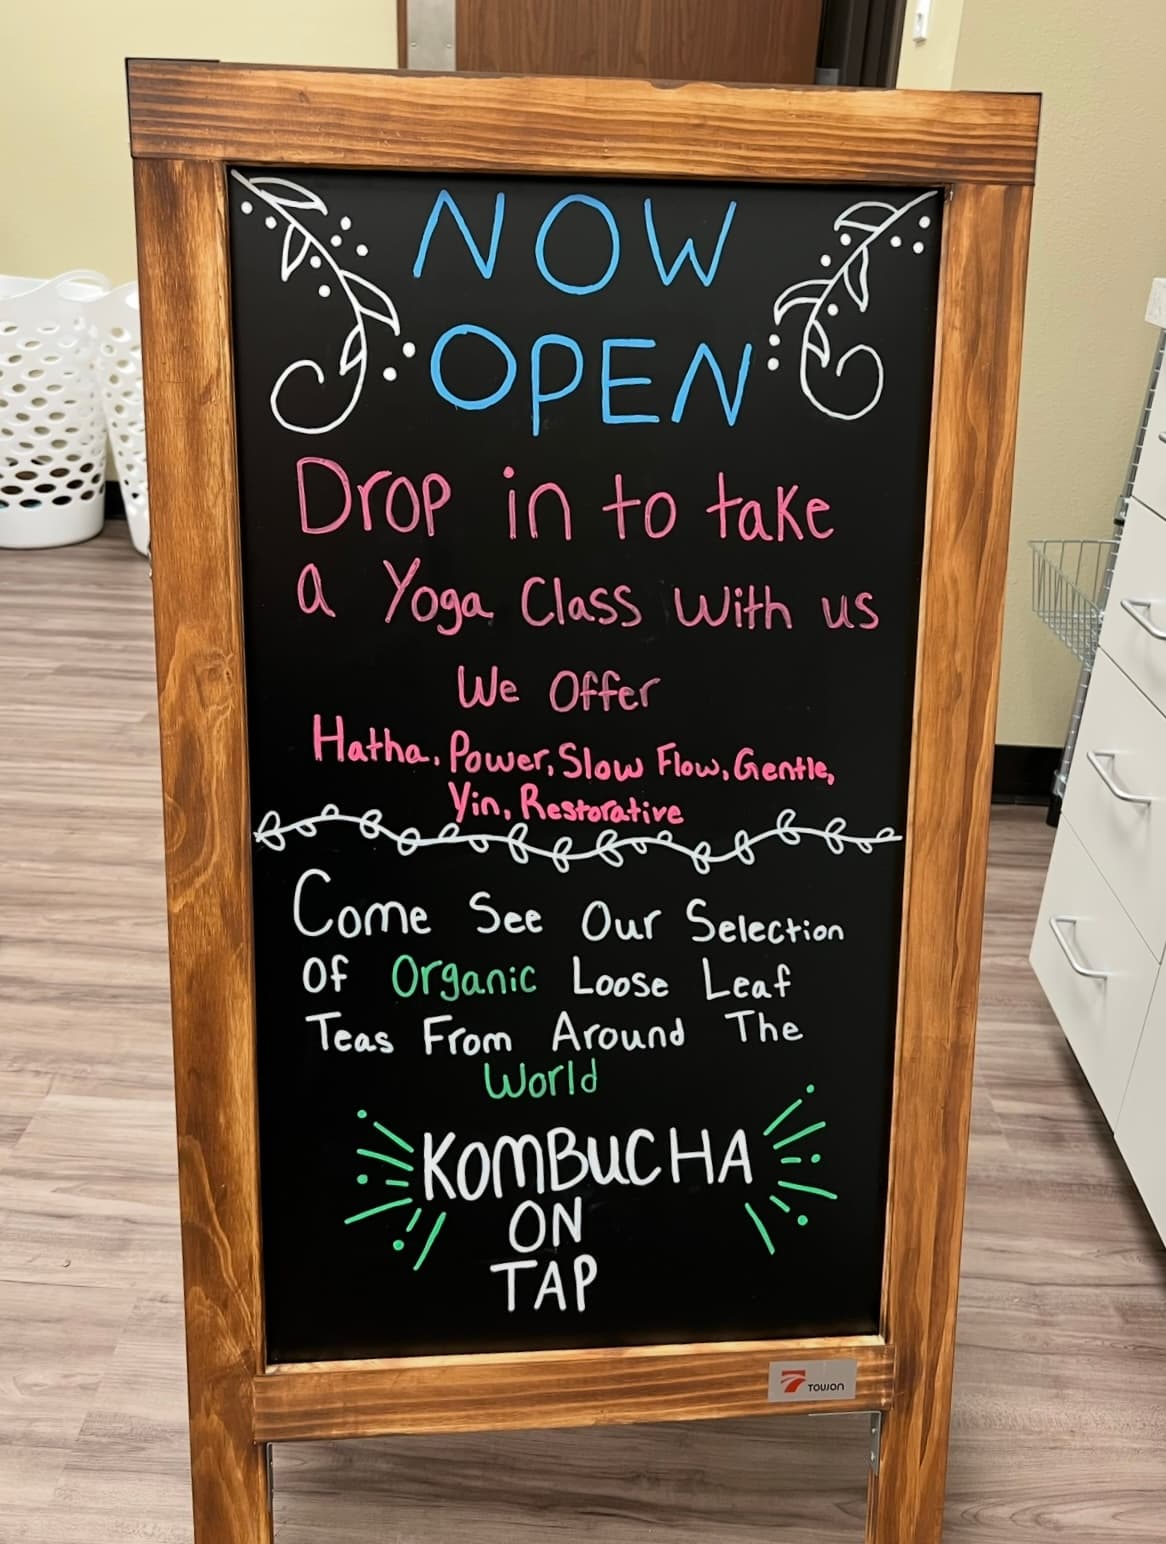 NOW
OPEN
Drop in to take
a Yoga Class With us
We Offer
Hatha, Power, Slow Flow, Gentle,
Yin, Restorative
Come See Our Selection
Of Organic Loose Leaf
Teas From Around The
World
KOMBUCHA
ON
TAP
TOWON